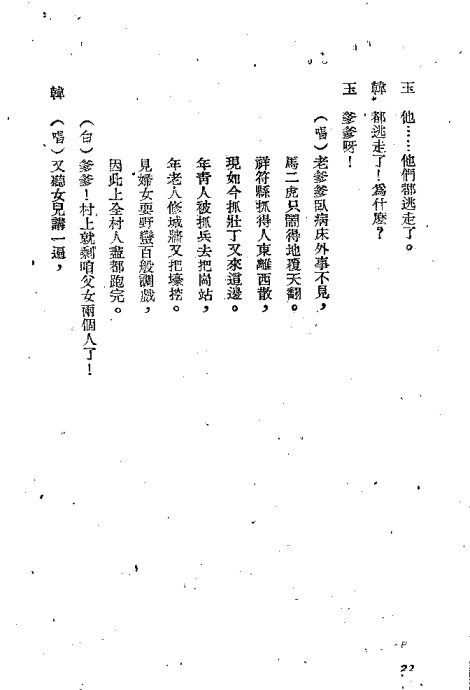 玉 他……他們都逃走了。
韓 都逃走了！爲什麽？
玉 爹爹呀！
（唱）老爹爹臥病床外事不見，
馬二虎只鬧得地覆天翻。
祥符縣抓得人東離西散，
現如今抓壯丁又來這邊。
年靑人被抓兵去把崗站，
年老人修城牆又把壕挖。
見婦女耍野蠻百般調戲，
因此上全村人盡都跑完。
（白）爹爹！村上就剩咱父女兩個人了！
韓 （唱）又聽女兒講一遍，
22